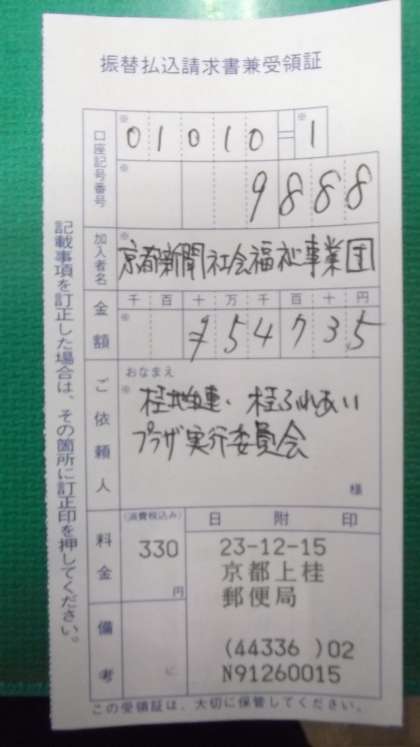 振替払込請求書兼受領証
口座記号番号
※ 01010=※ 1
※ 9888
加入者名
※
京都新聞社会福祉事業団
金額
千百十万千百十円
※ ¥54735
ご依頼人
おなまえ
※
桂地女連・桂ふれあい
プラザ実行委員会
様
料金
(消費税込み)
330
円
日附印
23-12-15
京都上桂
郵便局
(44336 )02
N91260015
備考
この受領証は、大切に保管してください。
記載事項を訂正した場合は、その箇所に訂正印を押してください。